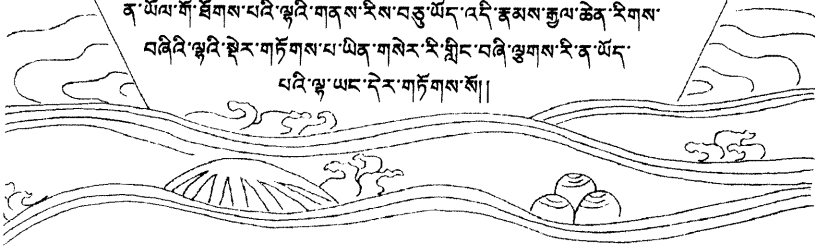 ན་ཡོལ་གོ་ཐོགས་པའི་ལྷའི་གནས་རིས་བཅུ་ཡོད་འདི་རྣམས་རྒྱལ་ཆེན་རིགས་
བཞིའི་ལྷའི་སྡེར་གཏོགས་པ་ཡིན་གསེར་རི་གླིང་བཞི་ལྕགས་རི་ན་ཡོད་
པའི་ལྷ་ཡང་དེར་གཏོགས་སོ།།